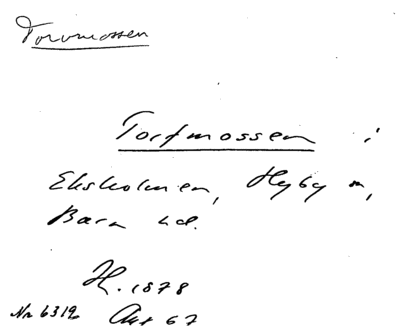 Torvmossen
Torfmossen i
Eksholmen, Hyby sn,
Bara hd.
H. 1878
Nr 6319 Akt 67